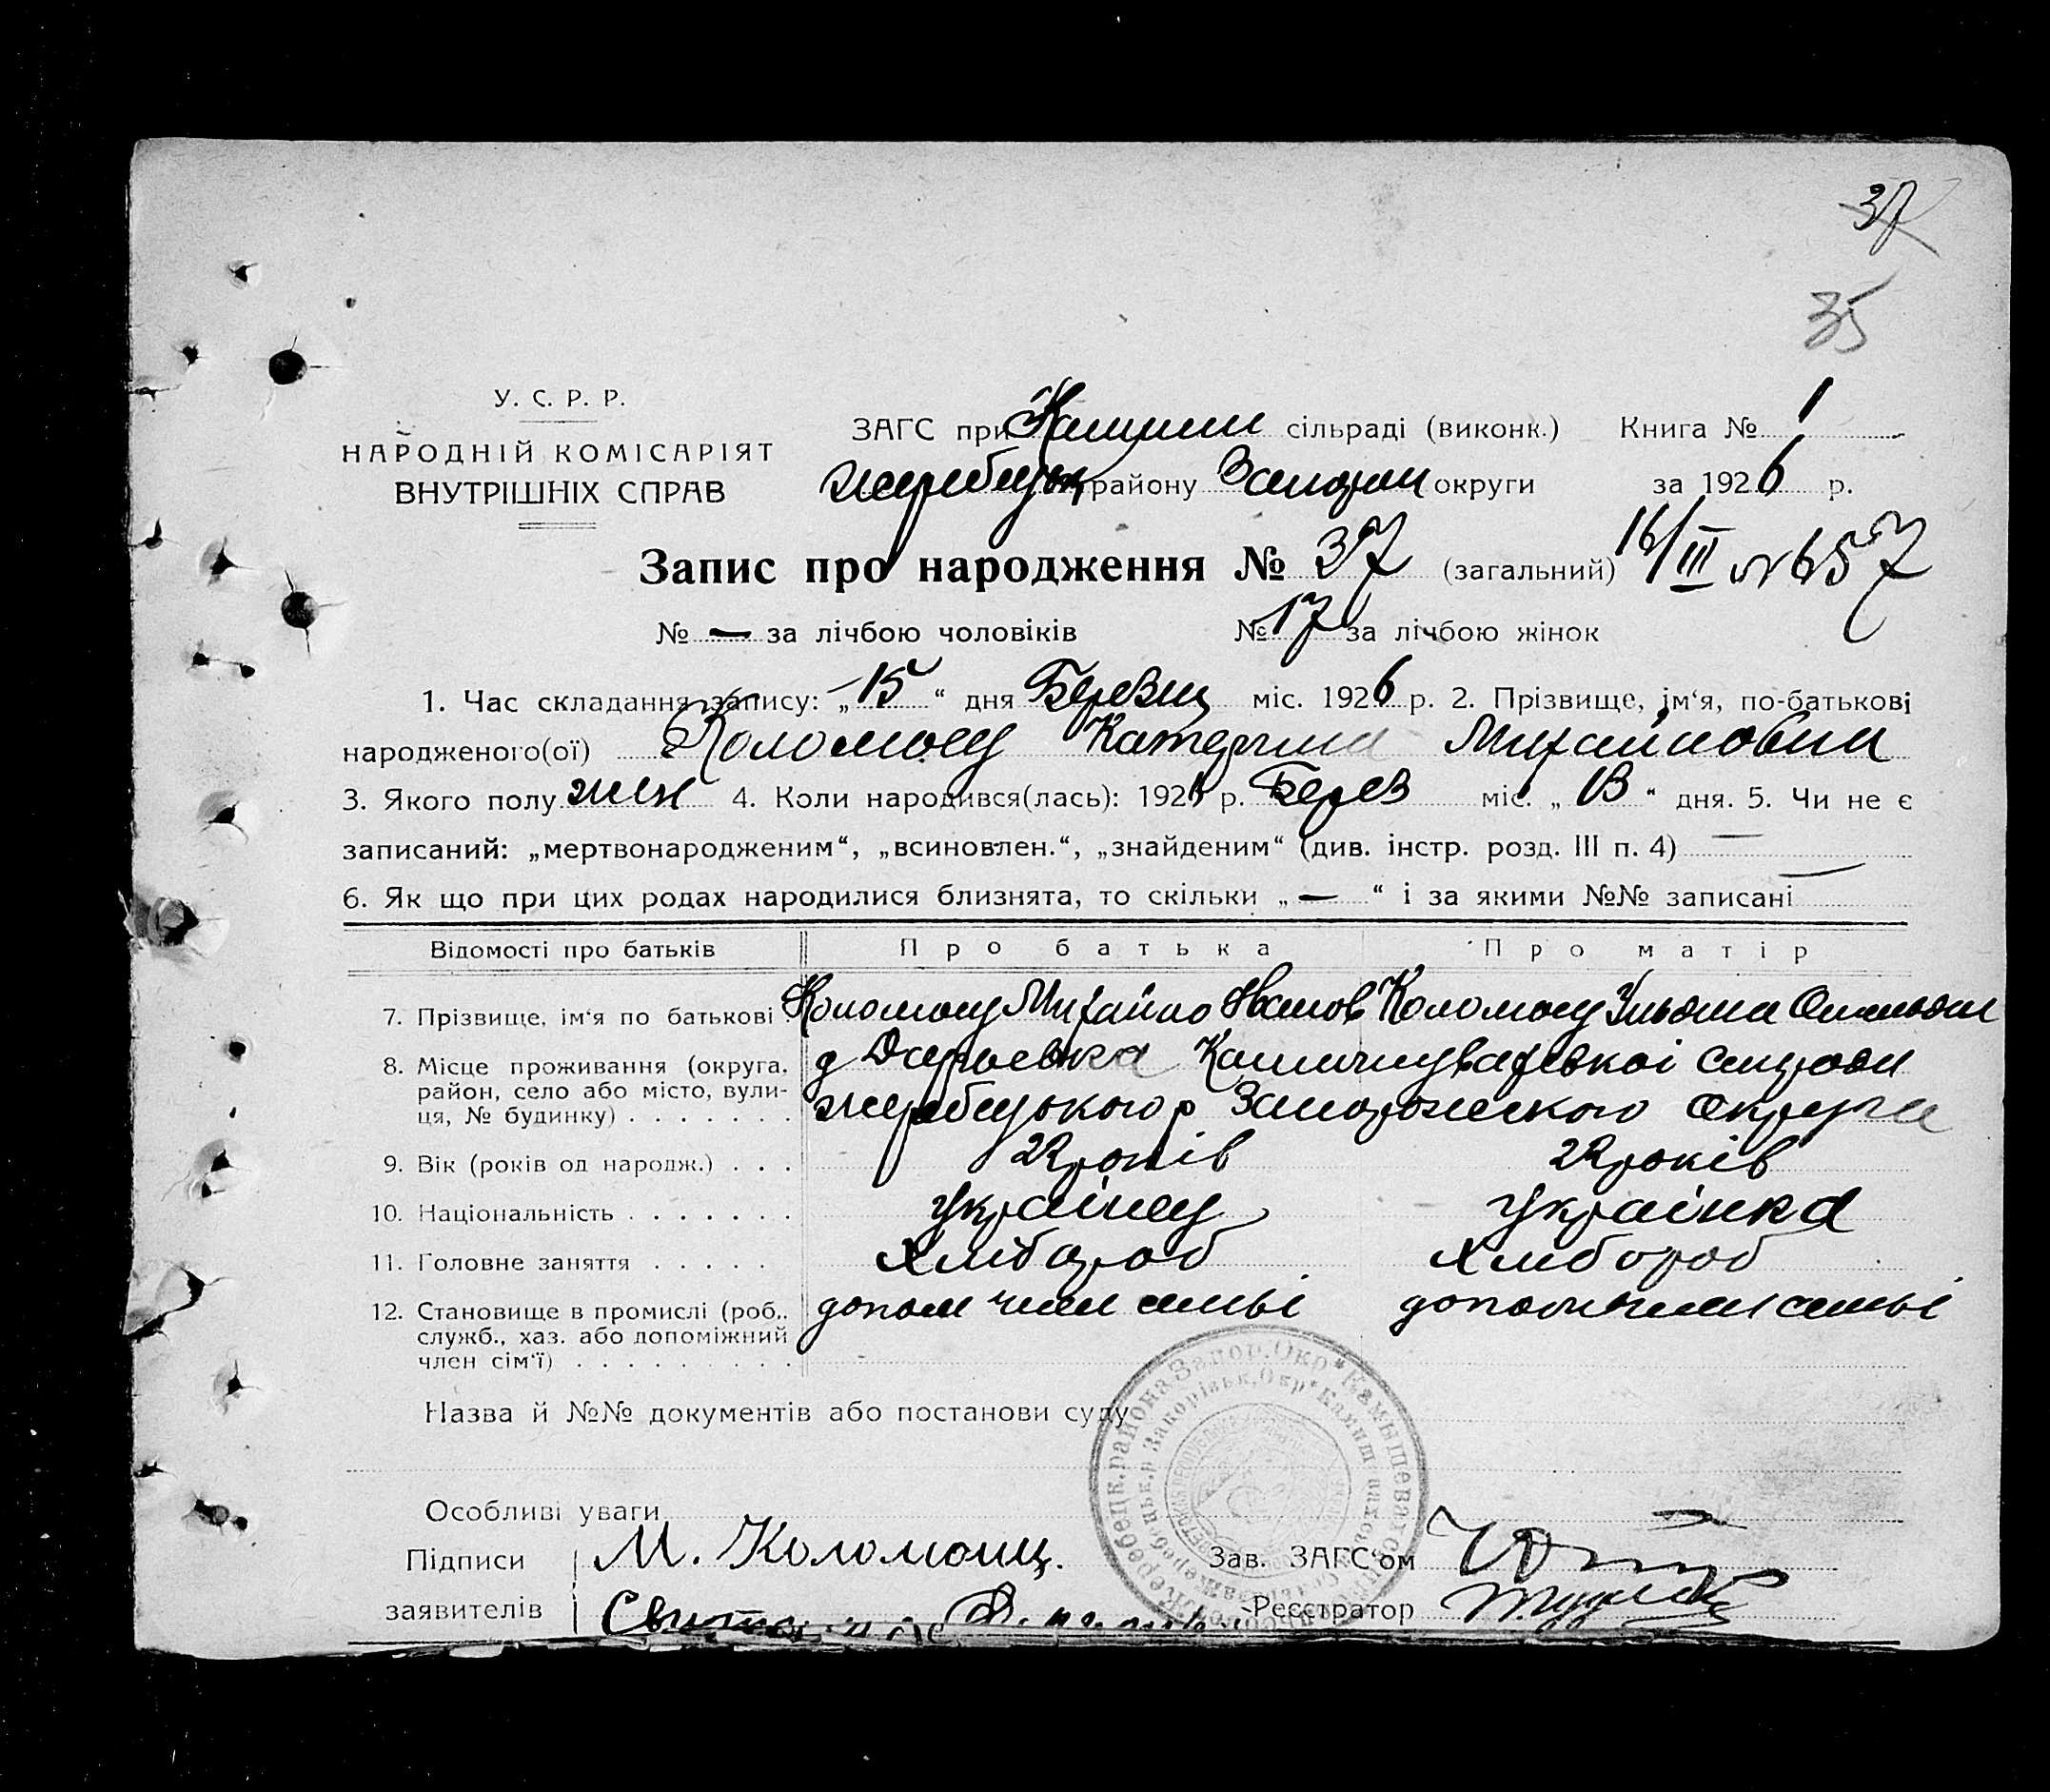 37
35
У. С. Р. Р.
НАРОДНІЙ КОМІСАРІЯТ
ВНУТРІШНІХ СПРАВ
ЗАГС при Камиш сільраді (виконк.) Книга № 1
жеребецьк району Запорож округи за 1926 р.
Запис про народження № 37 (загальний) 16/III № 657
№ — за лічбою чоловіків № 17 за лічбою жінок
1. Час складання запису: „15“ дня Березня міс. 1926 р. 2. Прізвище, ім‘я, по-батькові
народженого(ої) Коломоец Катерина Михайловна
3. Якого полу жен 4. Коли народився(лась): 1926 р. Берез міс. „13“ дня. 5. Чи не є
записаний: „мертвонародженим“, „всиновлен.“, „знайденим“ (див. інстр. розд. III п. 4) —
6. Як що при цих родах народилися близнята, то скільки „—“ і за якими №№ записані —
Відомості про батьків Про батька Про матір
7. Прізвище, ім‘я по батькові Коломоец Михайло Иванов Коломоец Ульяна
8. Місце проживання (округа, район, село або місто, вулиця, № будинку) д Дарьевка Камишувахскоі сільради
жеребецького р Запорожского округа
9. Вік (років од народж.) 22 років 22 років
10. Національність украінец украінка
11. Головне заняття Хлібороб Хлібороб
12. Становище в промислі (роб., служб., хаз. або допоміжний член сім‘ї) допом член симьі допом член симьі
Назва й №№ документів або постанови суду
Особливі уваги
Підписи М. Коломоиц. Зав. ЗАГС‘ом
заявителів Реєстратор